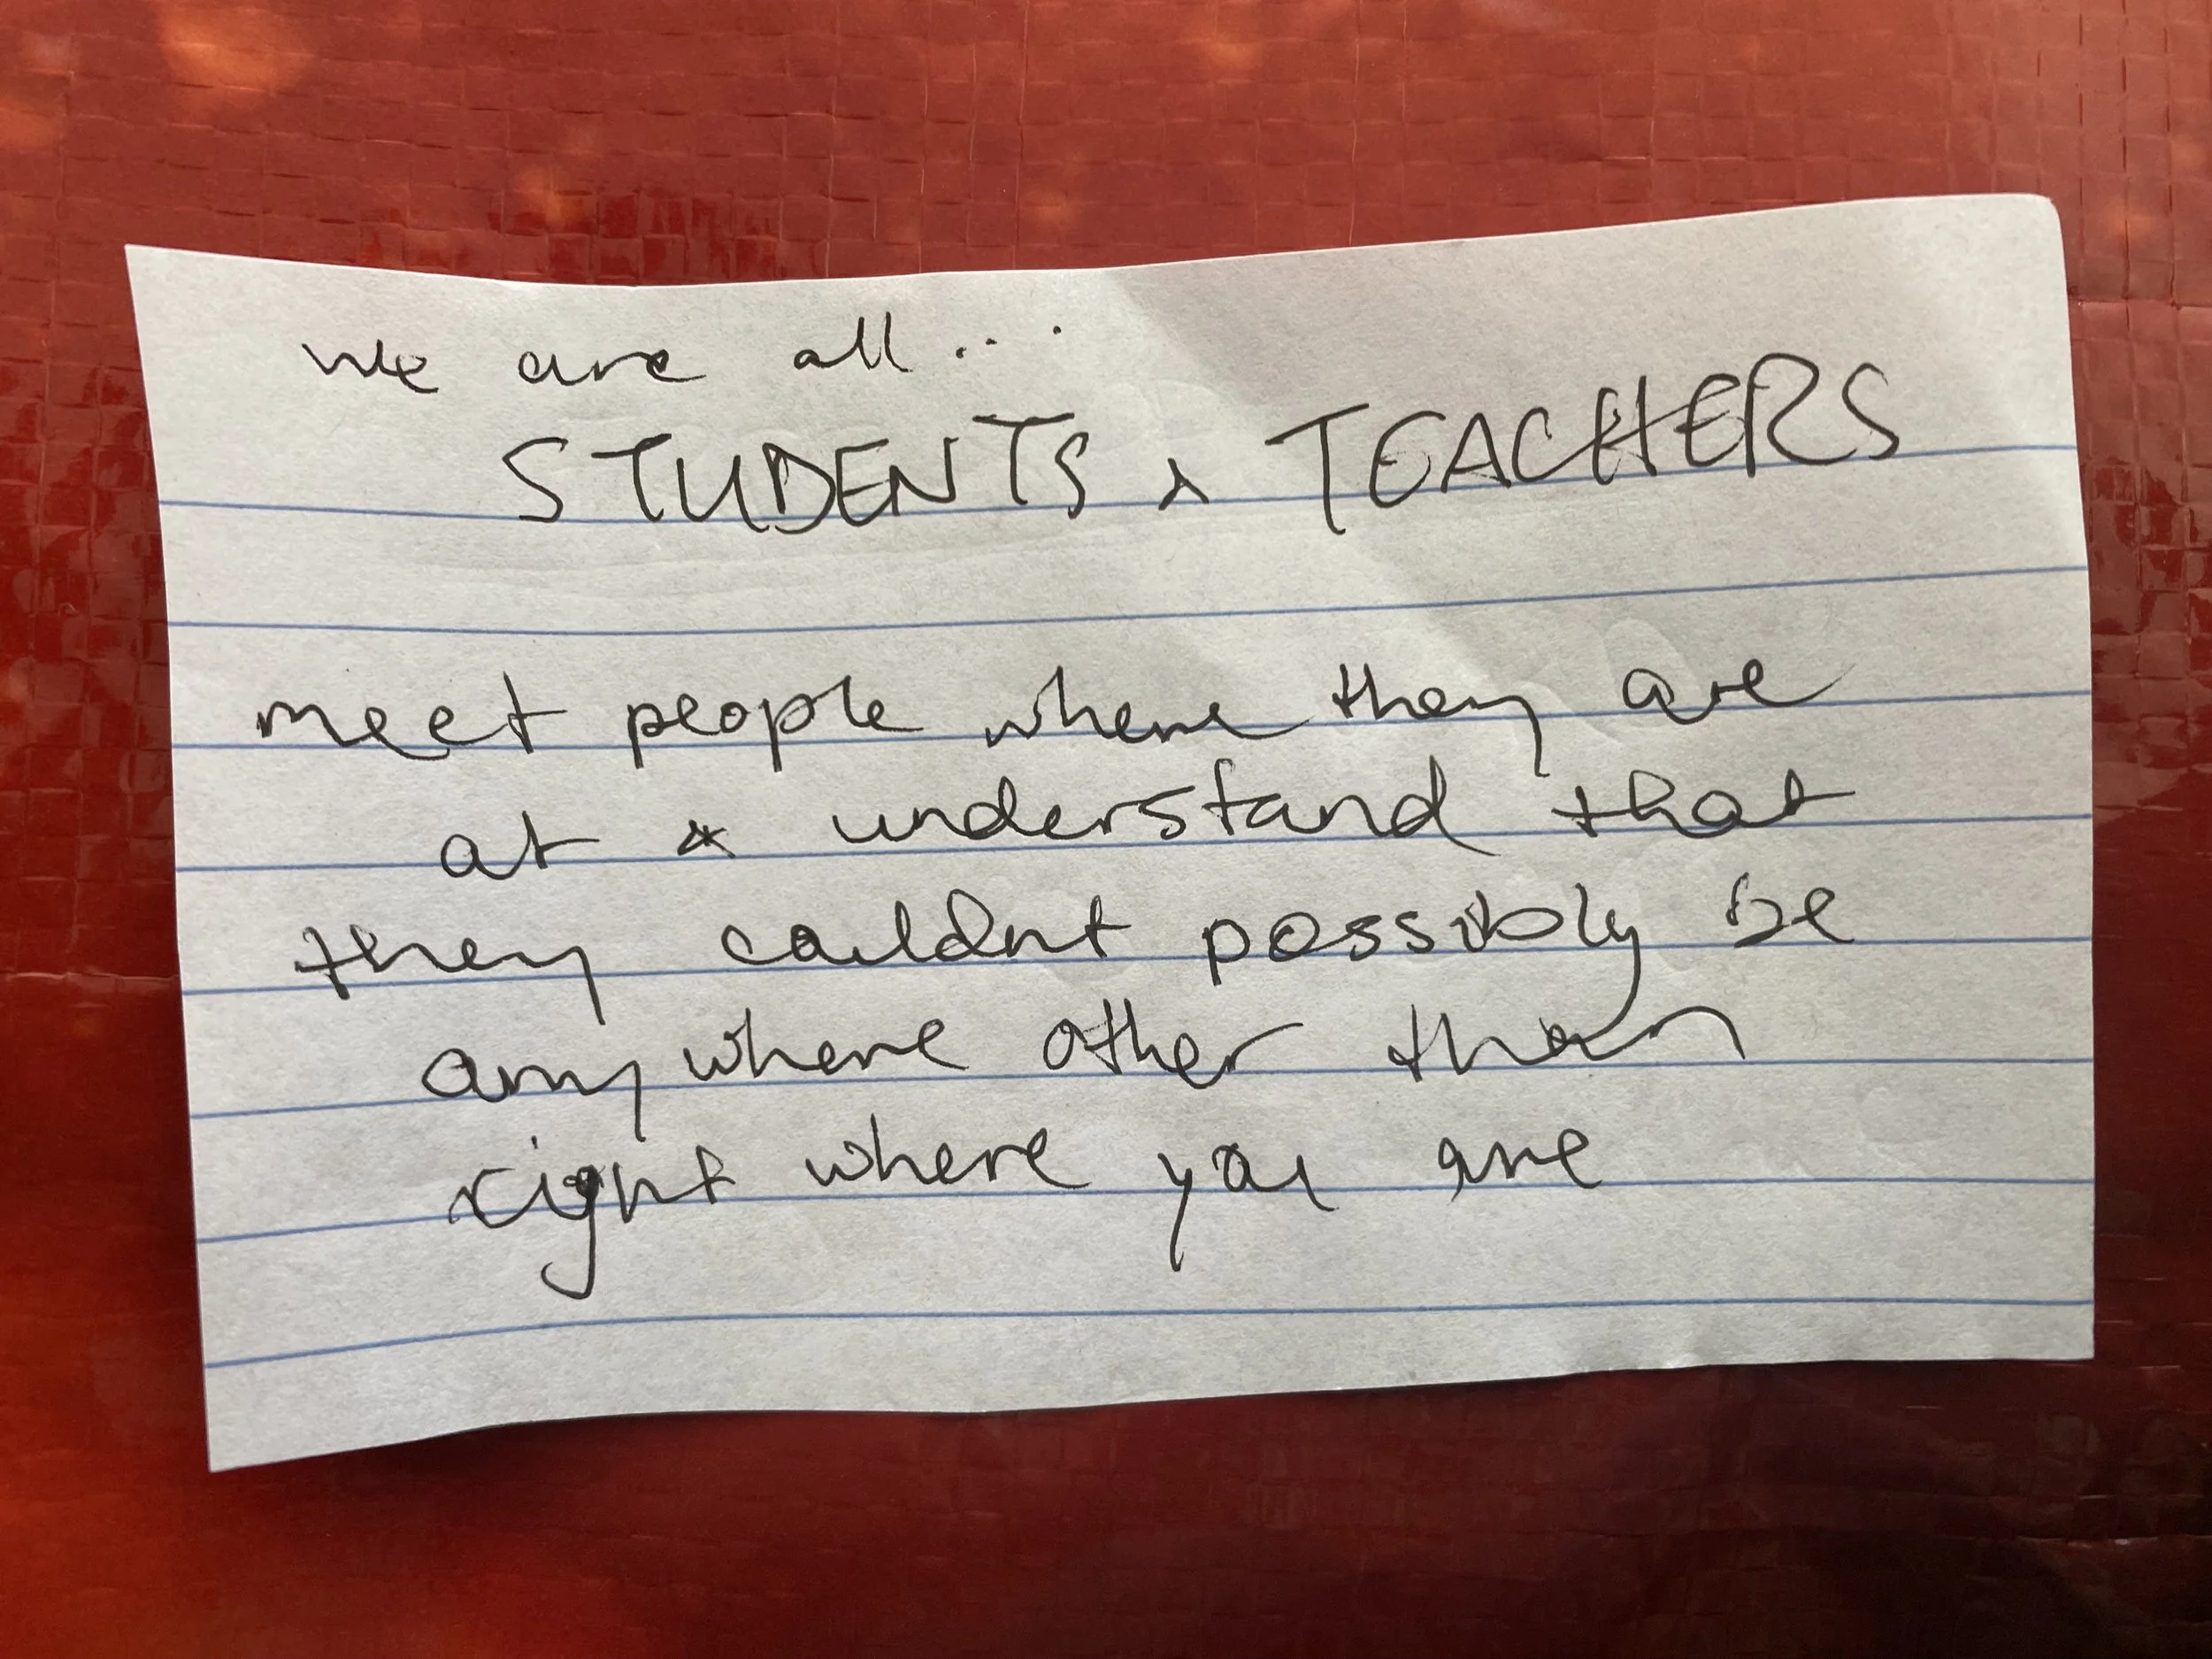 we are all...
STUDENTS & TEACHERS
meet people where they are
at & understand that
they couldnt possibly be
anywhere other than
right where you are